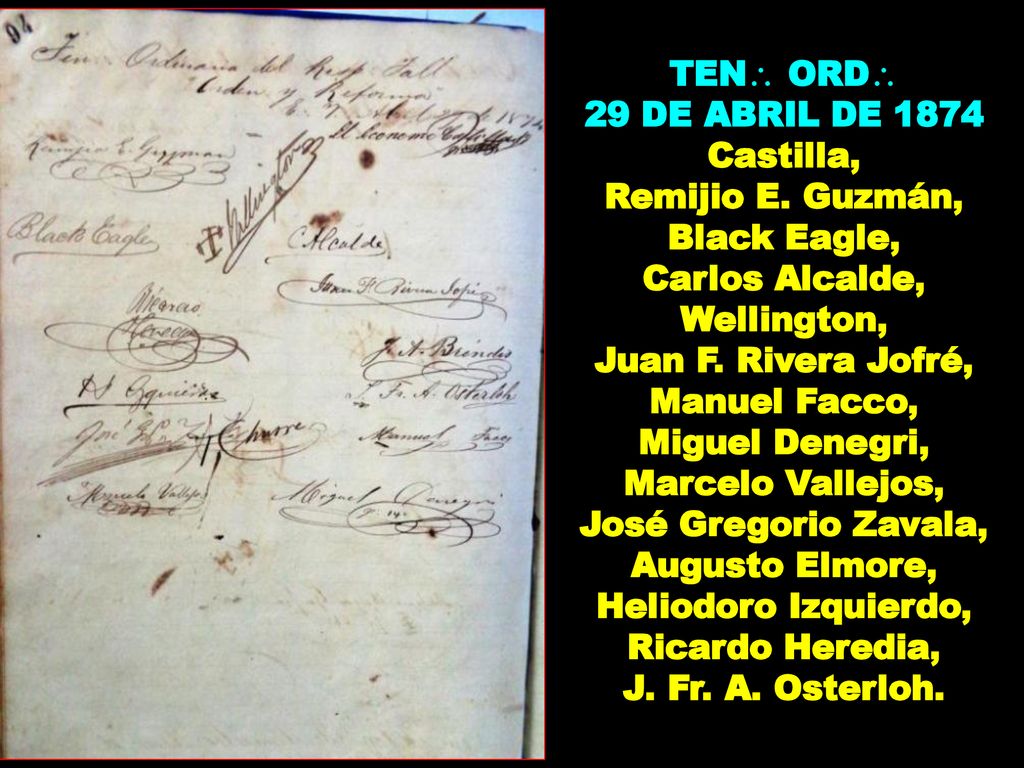 94
Ten Ordinaria del Resp Tall
Orden y Reforma
El Economo Castilla
Remijio E. Guzman
Wellington
Black Eagle
C Alcalde
Juan F. Rivera Jofré
J. A. Brindis
H Izquierdo
J. Fr. A. Osterloh
José
Manuel Facco
Marcelo Vallejos
Miguel Denegri
TEN∴ ORD∴
29 DE ABRIL DE 1874
Castilla,
Remijio E. Guzmán,
Black Eagle,
Carlos Alcalde,
Wellington,
Juan F. Rivera Jofré,
Manuel Facco,
Miguel Denegri,
Marcelo Vallejos,
José Gregorio Zavala,
Augusto Elmore,
Heliodoro Izquierdo,
Ricardo Heredia,
J. Fr. A. Osterloh.